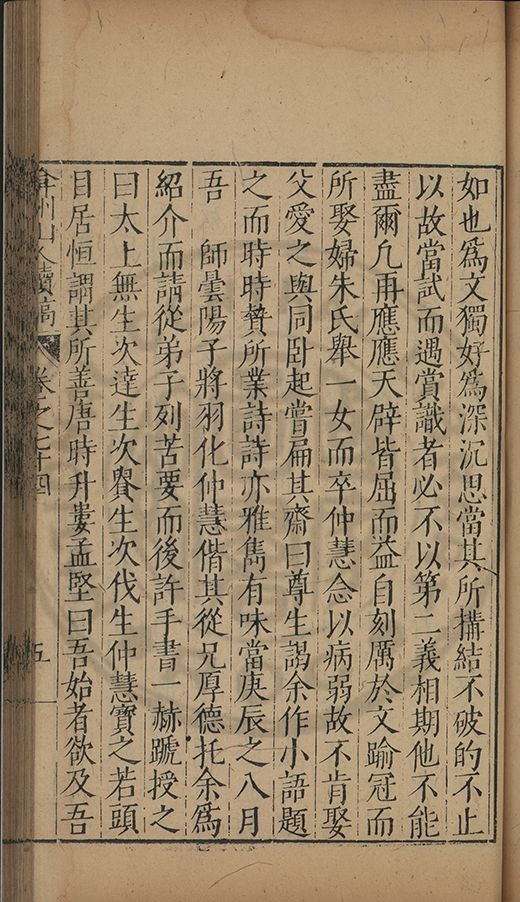 如也爲文獨好爲深沉思當其所搆結不破的不止
以故當試而遇賞識者必不以第二義相期他不能
盡爾凢再應應天辟皆屈而益自刻厲於文踰冠而
所娶婦朱氏舉一女而卒仲慧念以病弱故不肯娶
父愛之與同卧起嘗扁其齋曰尊生謁余作小語題
之而時時贄所業詩詩亦雅雋有味當庚辰之八月
吾 師曇陽子將羽化仲慧偕其從兄厚德托余爲
紹介而請從弟子列苦要而後許手書一赫蹏授之
曰太上無生次達生次貴生次伐生仲慧寶之若頭
目居恒謂其所善唐時升婁孟堅曰吾始者欲及吾
弇州山人續稿 卷之七十四 五